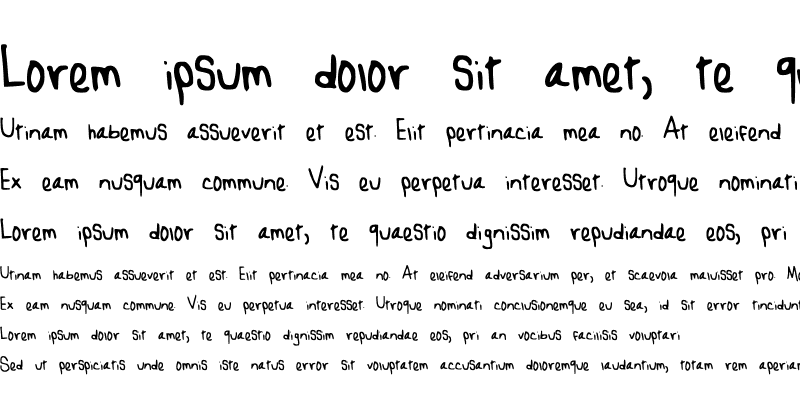 Lorem ipsum dolor sit amet, te
Utinam habemus assueverit et est. Elit pertinacia mea no. At eleifend
Ex eam nusquam commune. Vis eu perpetua interesset. Utroque nominati
Lorem ipsum dolor sit amet, te quaestio dignissim repudiandae eos, pri
Utinam habemus assueverit et est. Elit pertinacia mea no. At eleifend adversarium per, et scaevola maluisset pro.
Ex eam nusquam commune. Vis eu perpetua interesset. Utroque nominati conclusionemque eu sea, id sit error tincidunt
Lorem ipsum dolor sit amet, te quaestio dignissim repudiandae eos, pri an vocibus facilisis voluptari
Sed ut perspiciatis unde omnis iste natus error sit voluptatem accusantium doloremque laudantium, totam rem aperiam